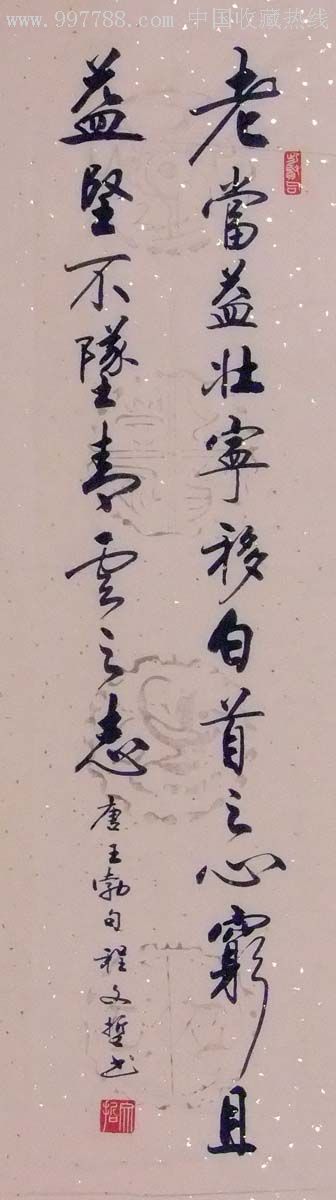 www.997788.com 中国收藏热线
老當益壯寧移白首之心窮且
益堅不墜青雲之志
唐王勃句程文哲书
文哲